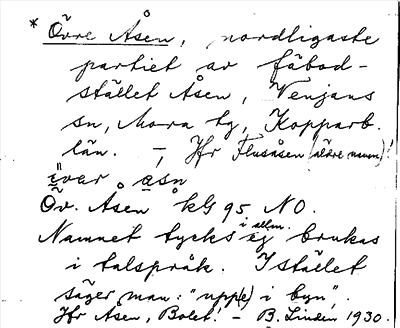 * Övre Åsen, nordligaste
partiet av fäbod-
stället Åsen, Venjans
sn, Mora tg, Kopparb.
län. -, Jfr Flusåsen (äldre namn)!
ö̤var a̤sn
Öv. Åsen kG 95 NO.
Namnet tycks i allm. ej brukas
i talspråk. I stället
säger man: "upp(e) i byn",
Jfr Åsen, Bolet! - B. Linden 1930.